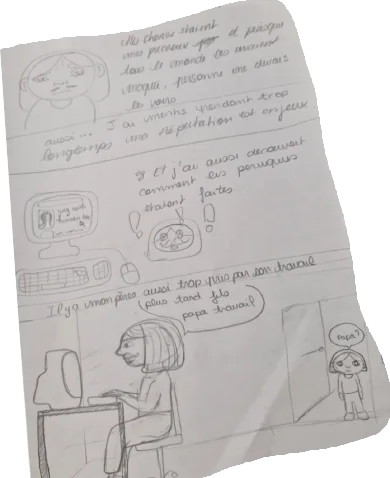 Mes cheveux étaient
mes précieux et puisque
tous le monde les avaient
moqué, personne ne devais
les voirs
aussi... J'ai mentis pendant trop
longtemps ma réputation est en jeux
Et j'ai aussi découvert
comment les perruques
étaient faites
! ! !
Il y a mon père aussi trop pris par son travail
plus tard fils
papa travail
Papa?